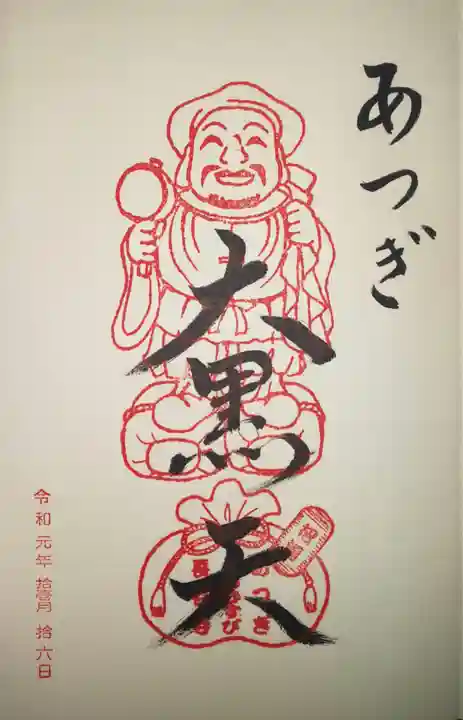 あつぎ
大黒天
令和元年拾壱月拾六日